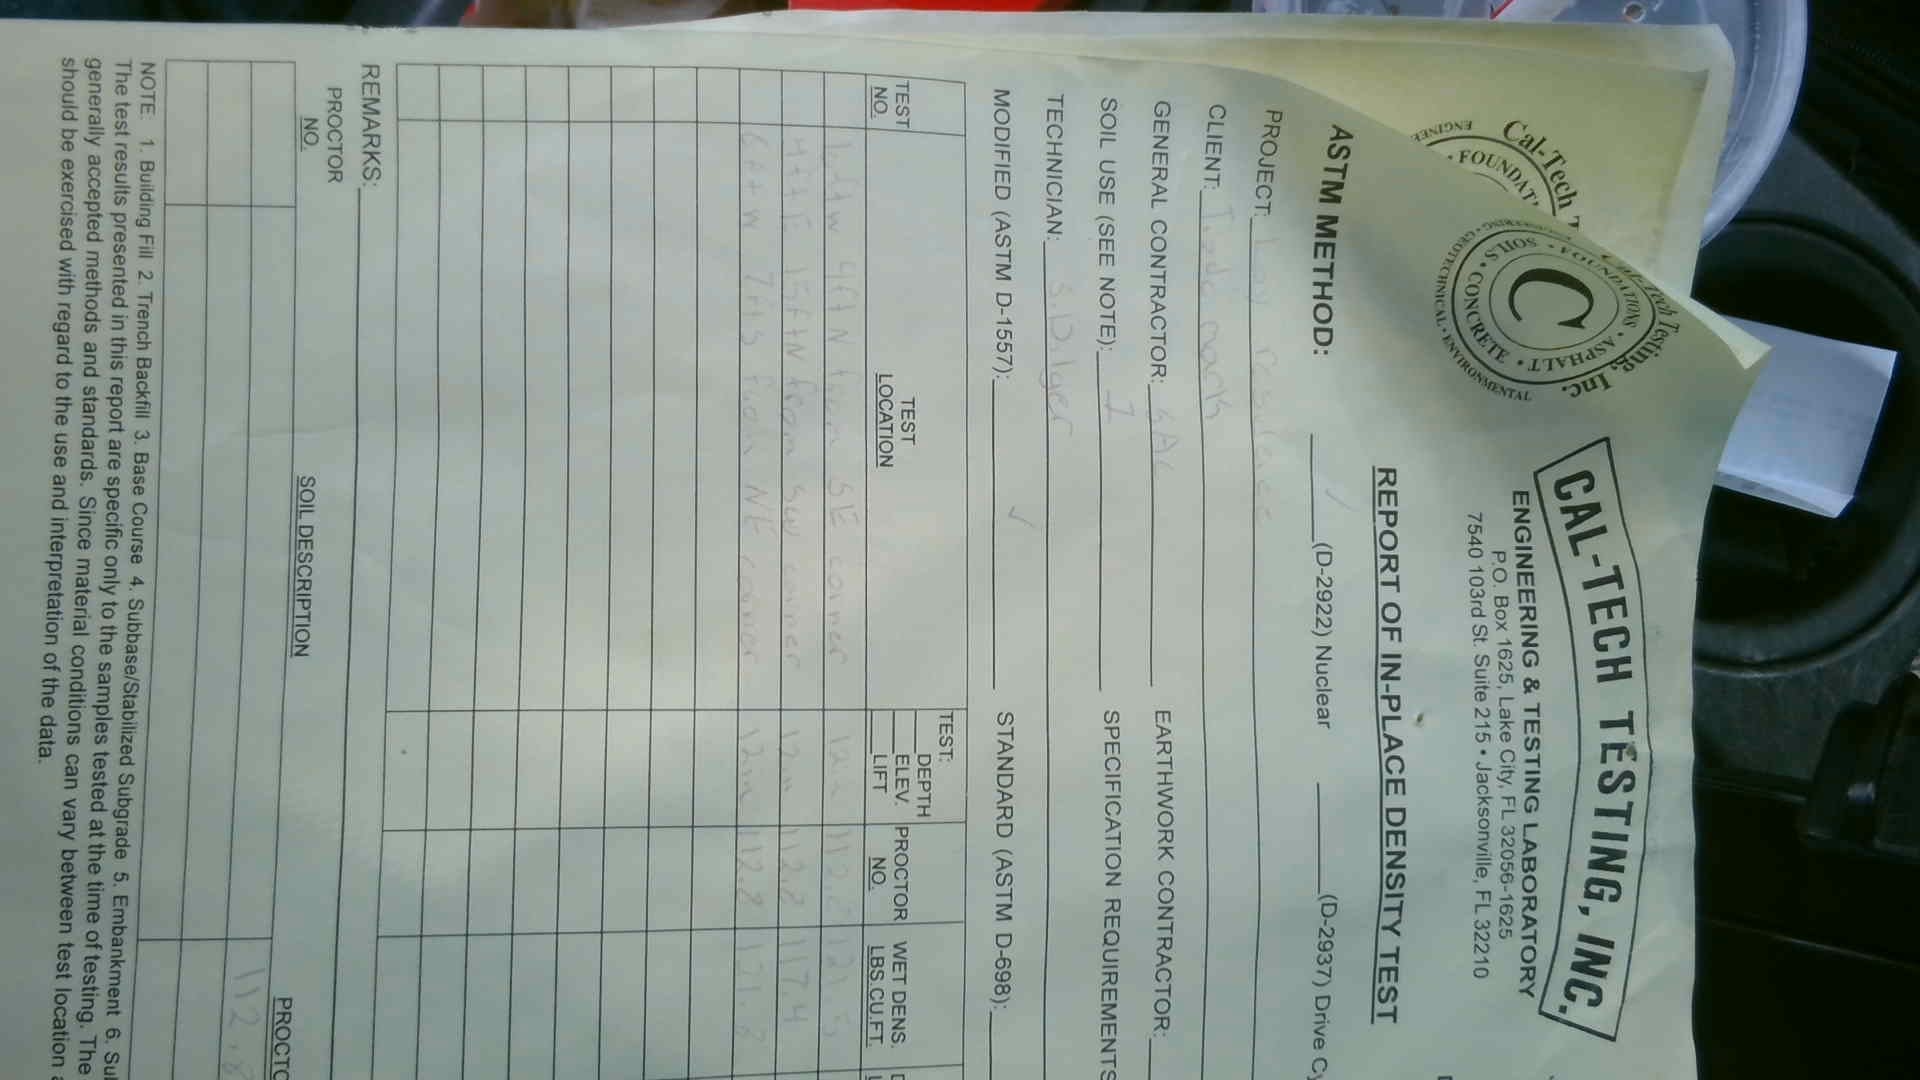 Cal-Tech
FOUNDAT
ENGINEER
Cal-Tech Testing, Inc.
FOUNDATIONS • ASPHALT • CONCRETE • SOILS •
GEOTECHNICAL • ENVIRONMENTAL
C
CAL-TECH TESTING, INC.
ENGINEERING & TESTING LABORATORY
P.O. Box 1625, Lake City, FL 32056-1625
7540 103rd St. Suite 215 • Jacksonville, FL 32210
REPORT OF IN-PLACE DENSITY TEST
ASTM METHOD: ✓ (D-2922) Nuclear (D-2937) Drive Cy
PROJECT:
CLIENT:
GENERAL CONTRACTOR: EARTHWORK CONTRACTOR:
SOIL USE (SEE NOTE): 1 SPECIFICATION REQUIREMENTS
TECHNICIAN: S. Dilger
MODIFIED (ASTM D-1557): ✓ STANDARD (ASTM D-698):
TEST NO. TEST LOCATION TEST: DEPTH ELEV. LIFT PROCTOR NO. WET DENS. LBS.CU.FT.
9ft N from SE corner 12in 112.8 121.5
4ft E 15ft N from SW corner 12in 112.8 117.4
6ft W 7ft S from NE corner 12in 112.8 121.8
REMARKS:
PROCTOR NO. SOIL DESCRIPTION PROCTO
112.8
NOTE: 1. Building Fill 2. Trench Backfill 3. Base Course 4. Subbase/Stabilized Subgrade 5. Embankment 6. Sul
The test results presented in this report are specific only to the samples tested at the time of testing. The
generally accepted methods and standards. Since material conditions can vary between test location
should be exercised with regard to the use and interpretation of the data.